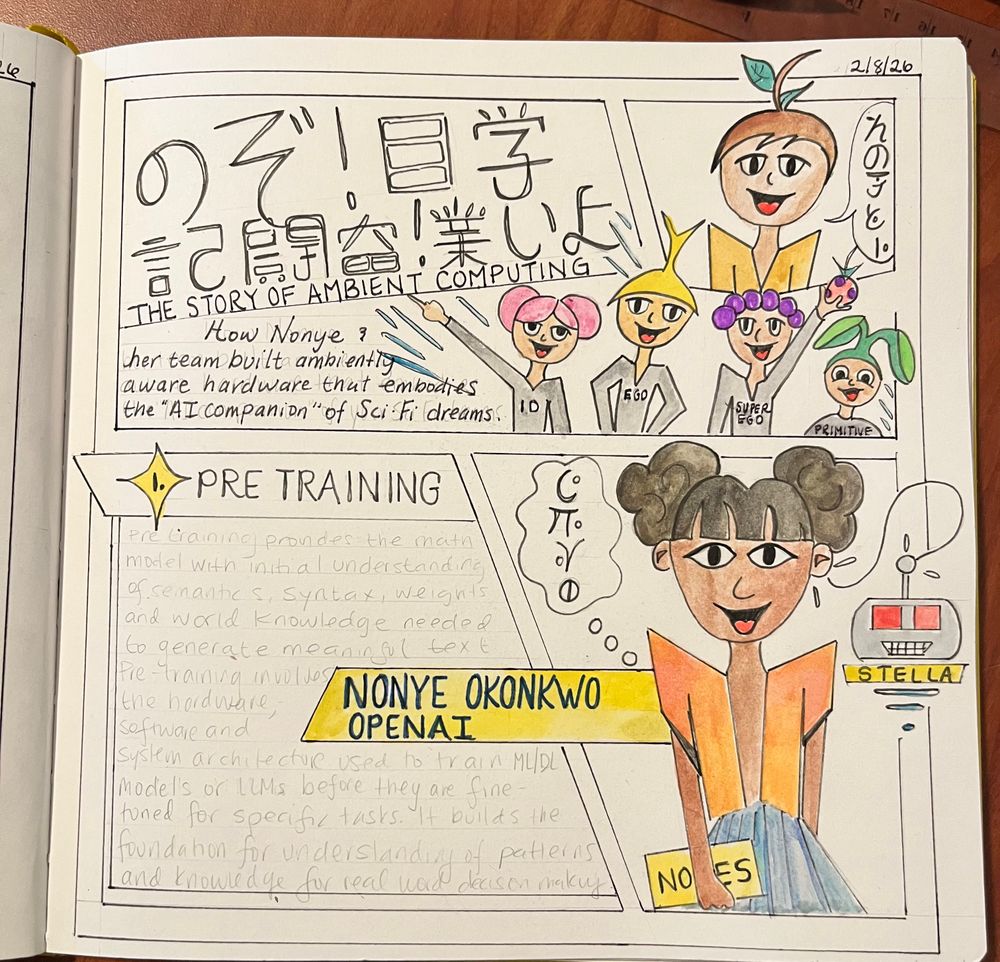 26
2/8/26
のぞ!目学
記闘容!業いよ
THE STORY OF AMBIENT COMPUTING
How Nonye &
her team built ambiently
aware hardware that embodies
the "AI companion" of Sci Fi dreams.
ID
EGO
SUPER
EGO
PRIMITIVE
1. PRE TRAINING
Pre training provides the math
model with initial understanding
of semantics, syntax, weights
and world knowledge needed
to generate meaningful text
Pre-training involves
the hardware,
software and
system architecture used to train ML/DL
models or LLMs before they are fine-
tuned for specific tasks. It builds the
foundation for understanding of patterns
and knowledge for real word decision making.
NONYE OKONKWO
OPENAI
STELLA
NO ES